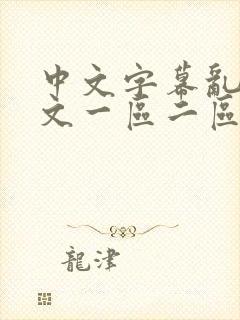 中文字幕亂
文一區二區
龍津